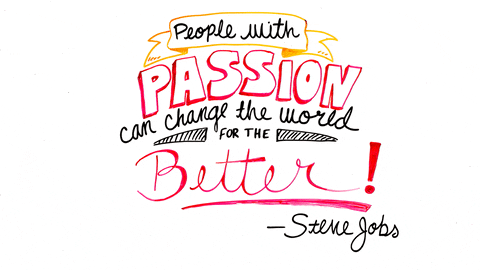 People with
PASSION
can change the world
FOR THE
Better!
—Steve Jobs